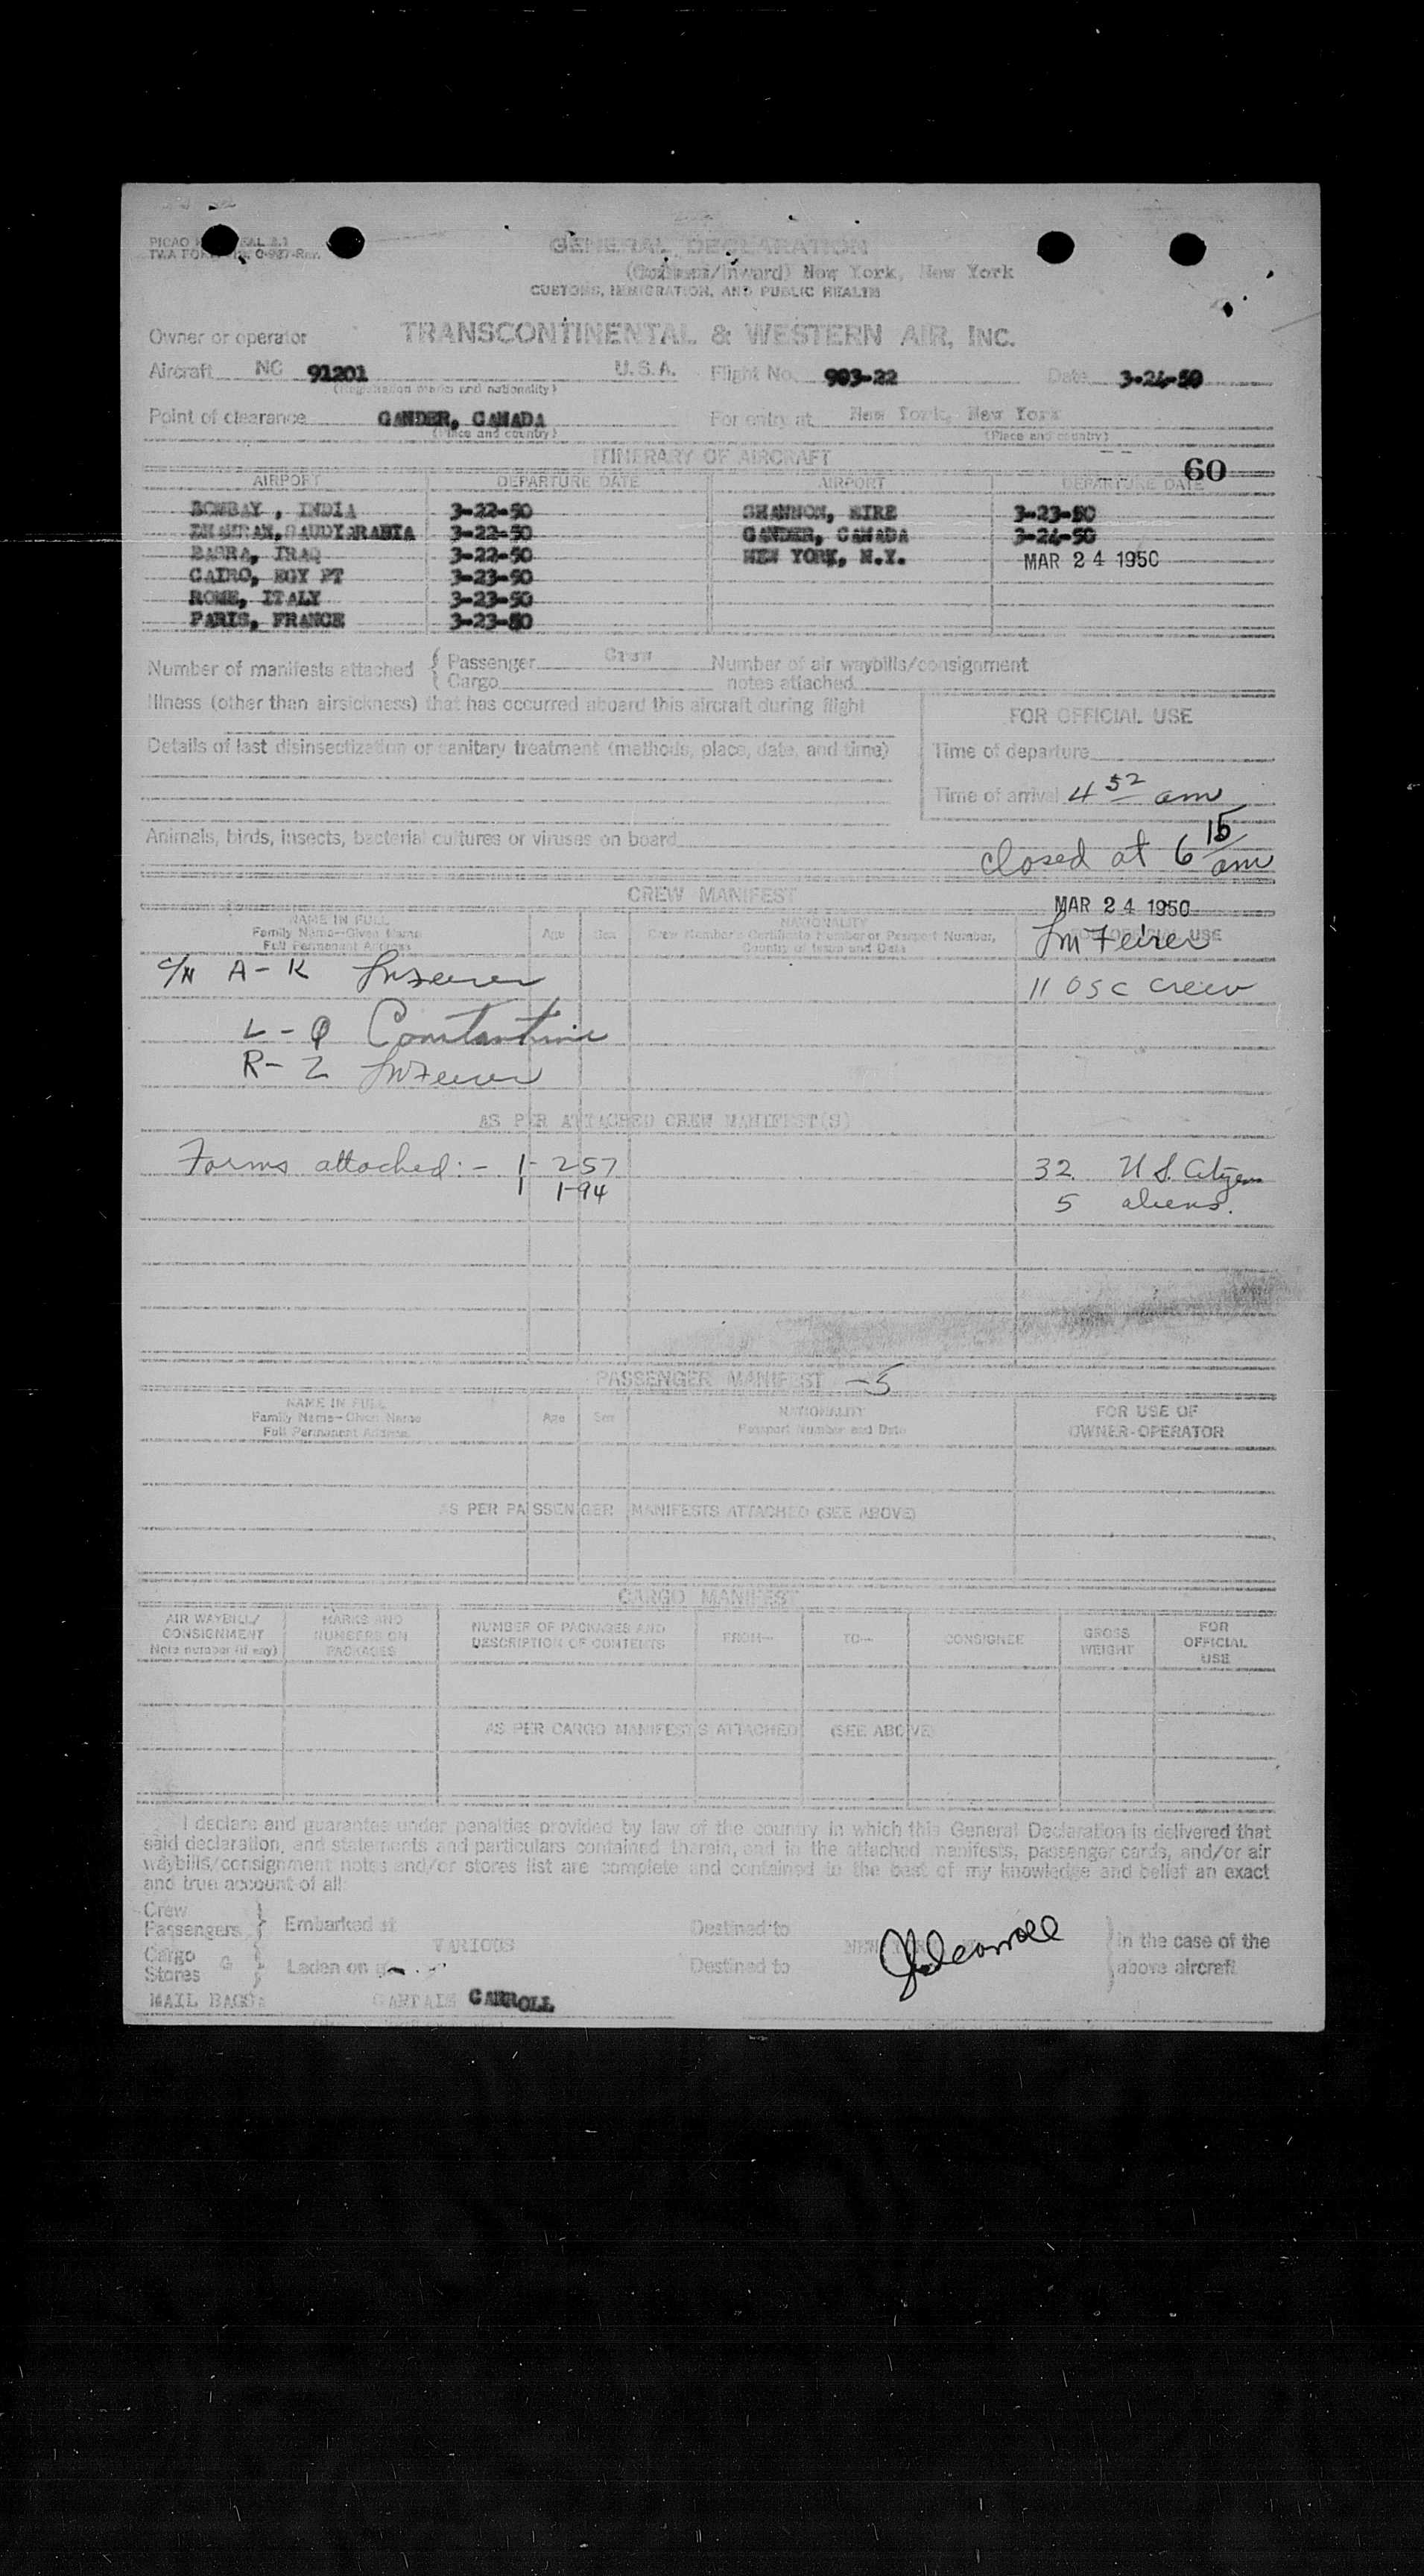 GENERAL DECLARATION
(Outward/Inward) New York, New York
CUSTOMS, IMMIGRATION, AND PUBLIC HEALTH
Owner or operator TRANSCONTINENTAL & WESTERN AIR, INC.
Aircraft NC 91201 U.S.A. Flight No. 903-22 Date 3-24-50
(Registration marks and nationality)
Point of clearance GANDER, CANADA For entry at New York, New York
(Place and country) (Place and country)
ITINERARY OF AIRCRAFT 60
AIRPORT DEPARTURE DATE AIRPORT DEPARTURE DATE
BOMBAY , INDIA 3-22-50 SHANNON, EIRE 3-23-50
DHAHRAN, SAUDYARABIA 3-22-50 GANDER, CANADA 3-24-50
BASRA, IRAQ 3-22-50 NEW YORK, N.Y. MAR 24 1950
CAIRO, EGY PT 3-23-50
ROME, ITALY 3-23-50
PARIS, FRANCE 3-23-50
Number of manifests attached { Passenger Crew Number of air waybills/consignment
Cargo notes attached
Illness (other than airsickness) that has occurred aboard this aircraft during flight
FOR OFFICIAL USE
Details of last disinsectization or sanitary treatment (methods, place, date, and time) Time of departure
Time of arrival 4 52 am
Animals, birds, insects, bacterial cultures or viruses on board
closed at 6 15 am
CREW MANIFEST
MAR 24 1950
NAME IN FULL NATIONALITY
Family Name—Given Name Age Sex Crew Member's Certificate Number or Passport Number, FOR OFFICIAL USE
Full Permanent Address Country of Issue and Date
A - K
11 USC Crew
L - Q Constantine
R - Z
AS PER ATTACHED CREW MANIFEST(S)
Forms attached :- 1- 257 32 U S. Citizens
1 I-94 5 aliens.
PASSENGER MANIFEST -5
NAME IN FULL NATIONALITY FOR USE OF
Family Name—Given Name Age Sex Passport Number and Date OWNER-OPERATOR
Full Permanent Address
AS PER PASSENGER MANIFESTS ATTACHED (SEE ABOVE)
CARGO MANIFEST
AIR WAYBILL/ MARKS AND NUMBER OF PACKAGES AND FROM— TO— CONSIGNEE GROSS FOR
CONSIGNMENT NUMBERS ON DESCRIPTION OF CONTENTS WEIGHT OFFICIAL
Note number (if any) PACKAGES USE
AS PER CARGO MANIFESTS ATTACHED (SEE ABOVE)
I declare and guarantee under penalties provided by law of the country in which this General Declaration is delivered that
said declaration, and statements and particulars contained therein, and in the attached manifests, passenger cards, and/or air
waybills/consignment notes and/or stores list are complete and contained to the best of my knowledge and belief an exact
and true account of all:
Crew
Passengers } Embarked at Destined to } in the case of the
VARIOUS
Cargo
Stores } Laden on Destined to above aircraft
MAIL BAGS: CAPTAIN CARROLL